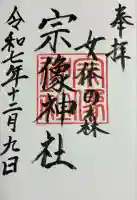 奉拝
女体の森
宗像神社
令和七年十二月九日